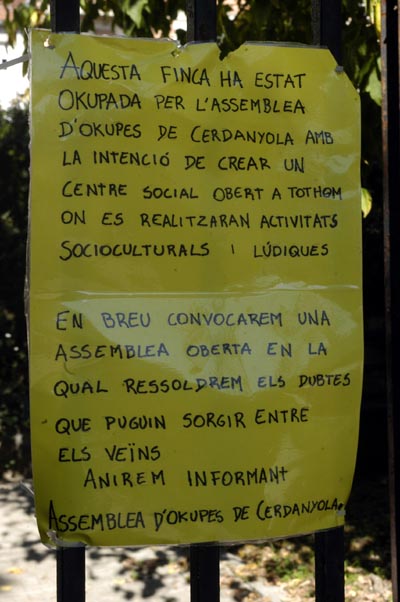 AQUESTA FINCA HA ESTAT
OKUPADA PER L'ASSEMBLEA
D'OKUPES DE CERDANYOLA AMB
LA INTENCIÓ DE CREAR UN
CENTRE SOCIAL OBERT A TOTHOM
ON ES REALITZARAN ACTIVITATS
SOCIOCULTURALS I LÚDIQUES
EN BREU CONVOCAREM UNA
ASSEMBLEA OBERTA EN LA
QUAL RESSOLDREM ELS DUBTES
QUE PUGUIN SORGIR ENTRE
ELS VEÏNS
ANIREM INFORMANT
ASSEMBLEA D'OKUPES DE CERDANYOLA.